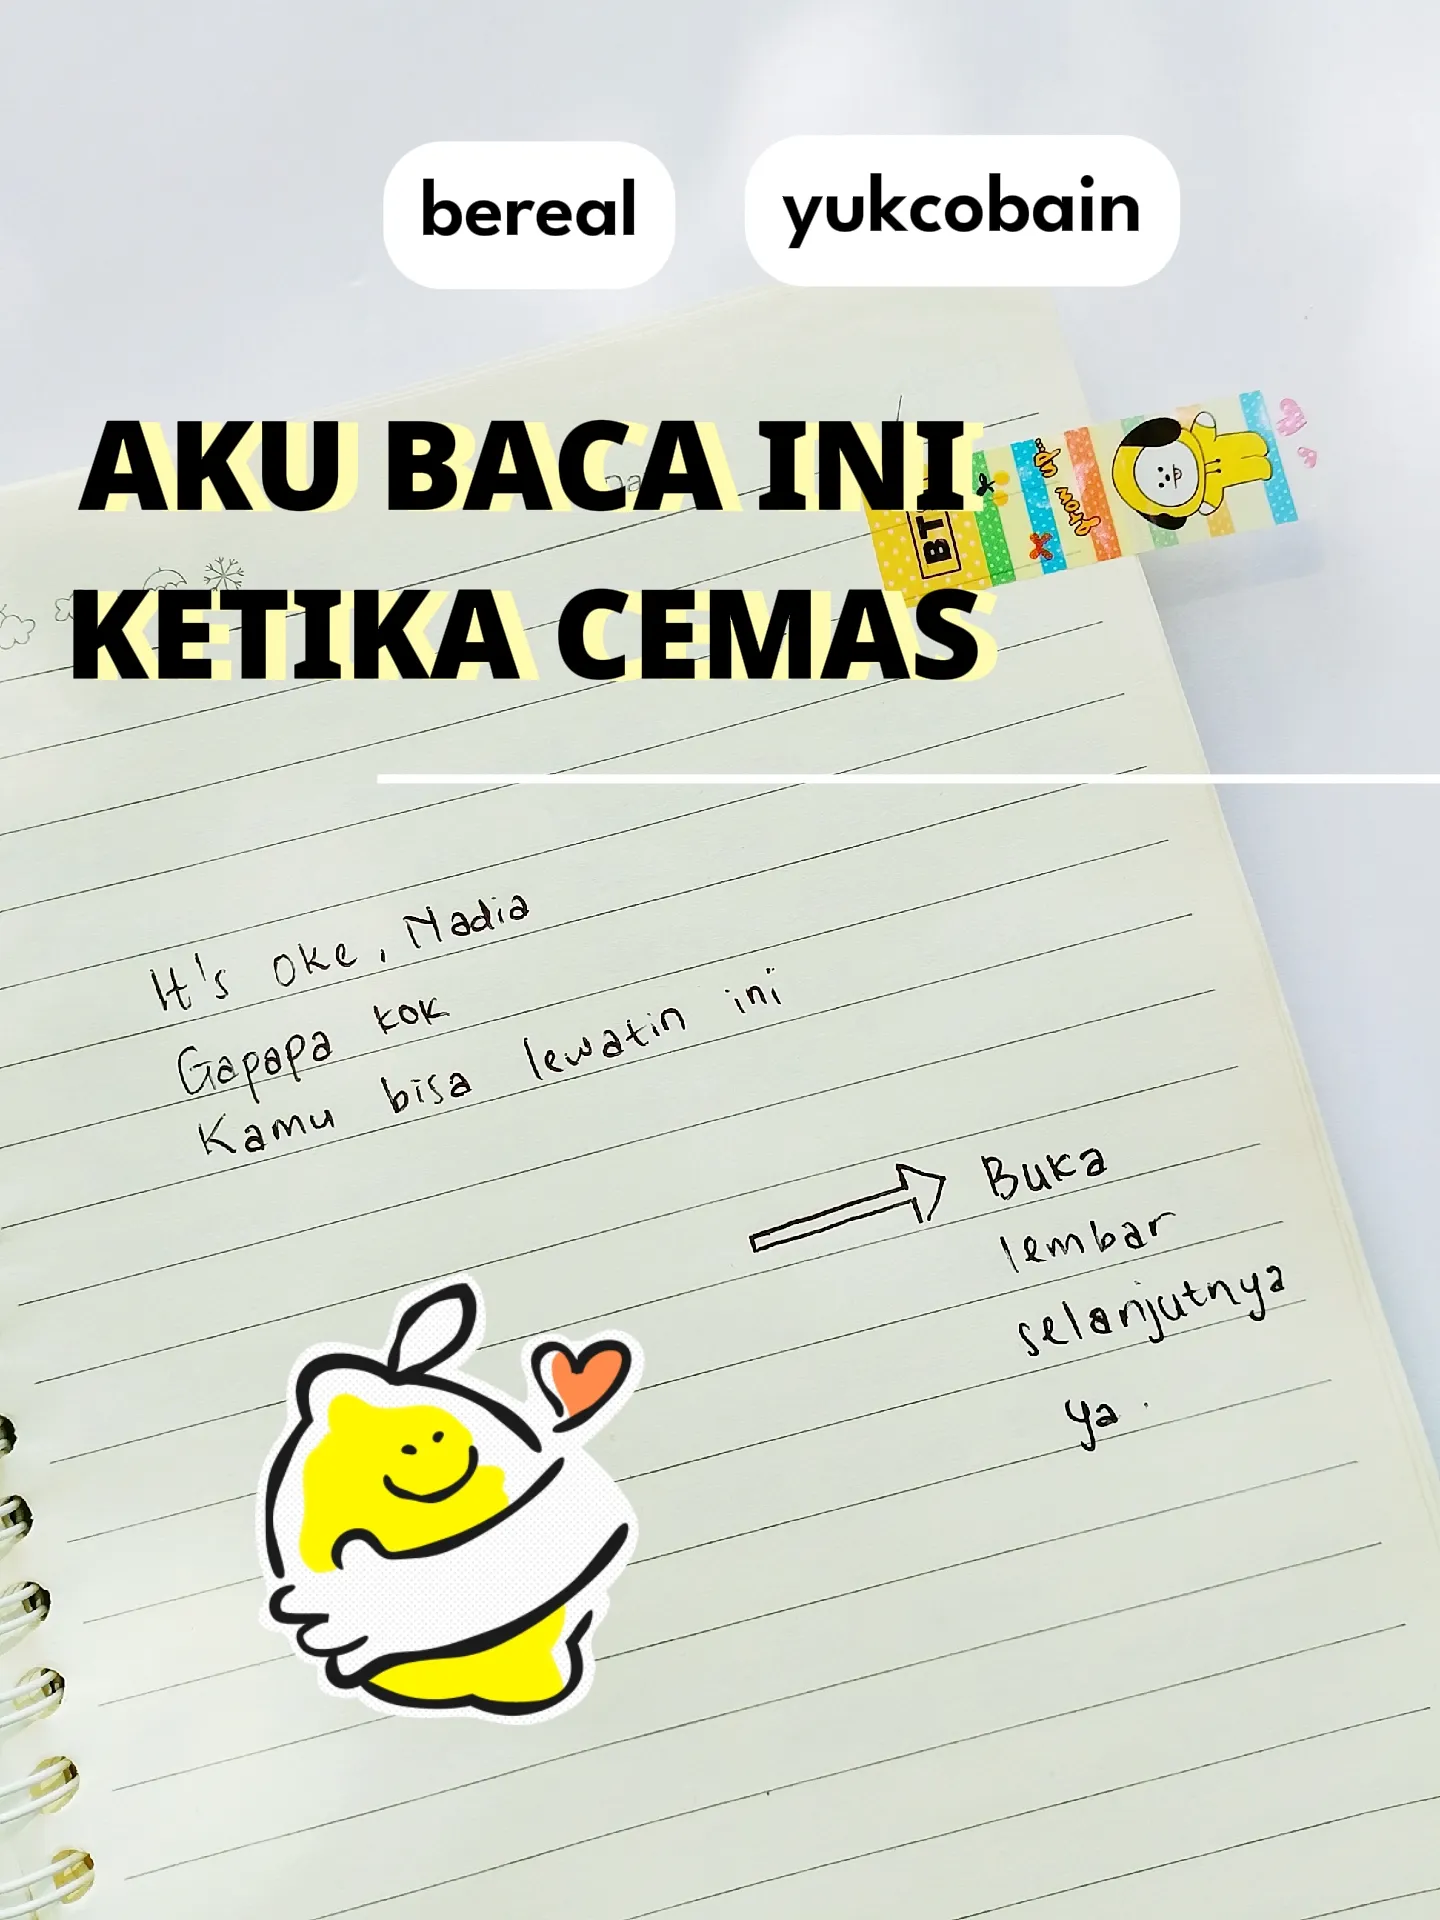 bereal
yukcobain
AKU BACA INI
KETIKA CEMAS
It's oke, Nadia
Gapapa kok
Kamu bisa lewatin ini
Buka
lembar
selanjutnya
ya.